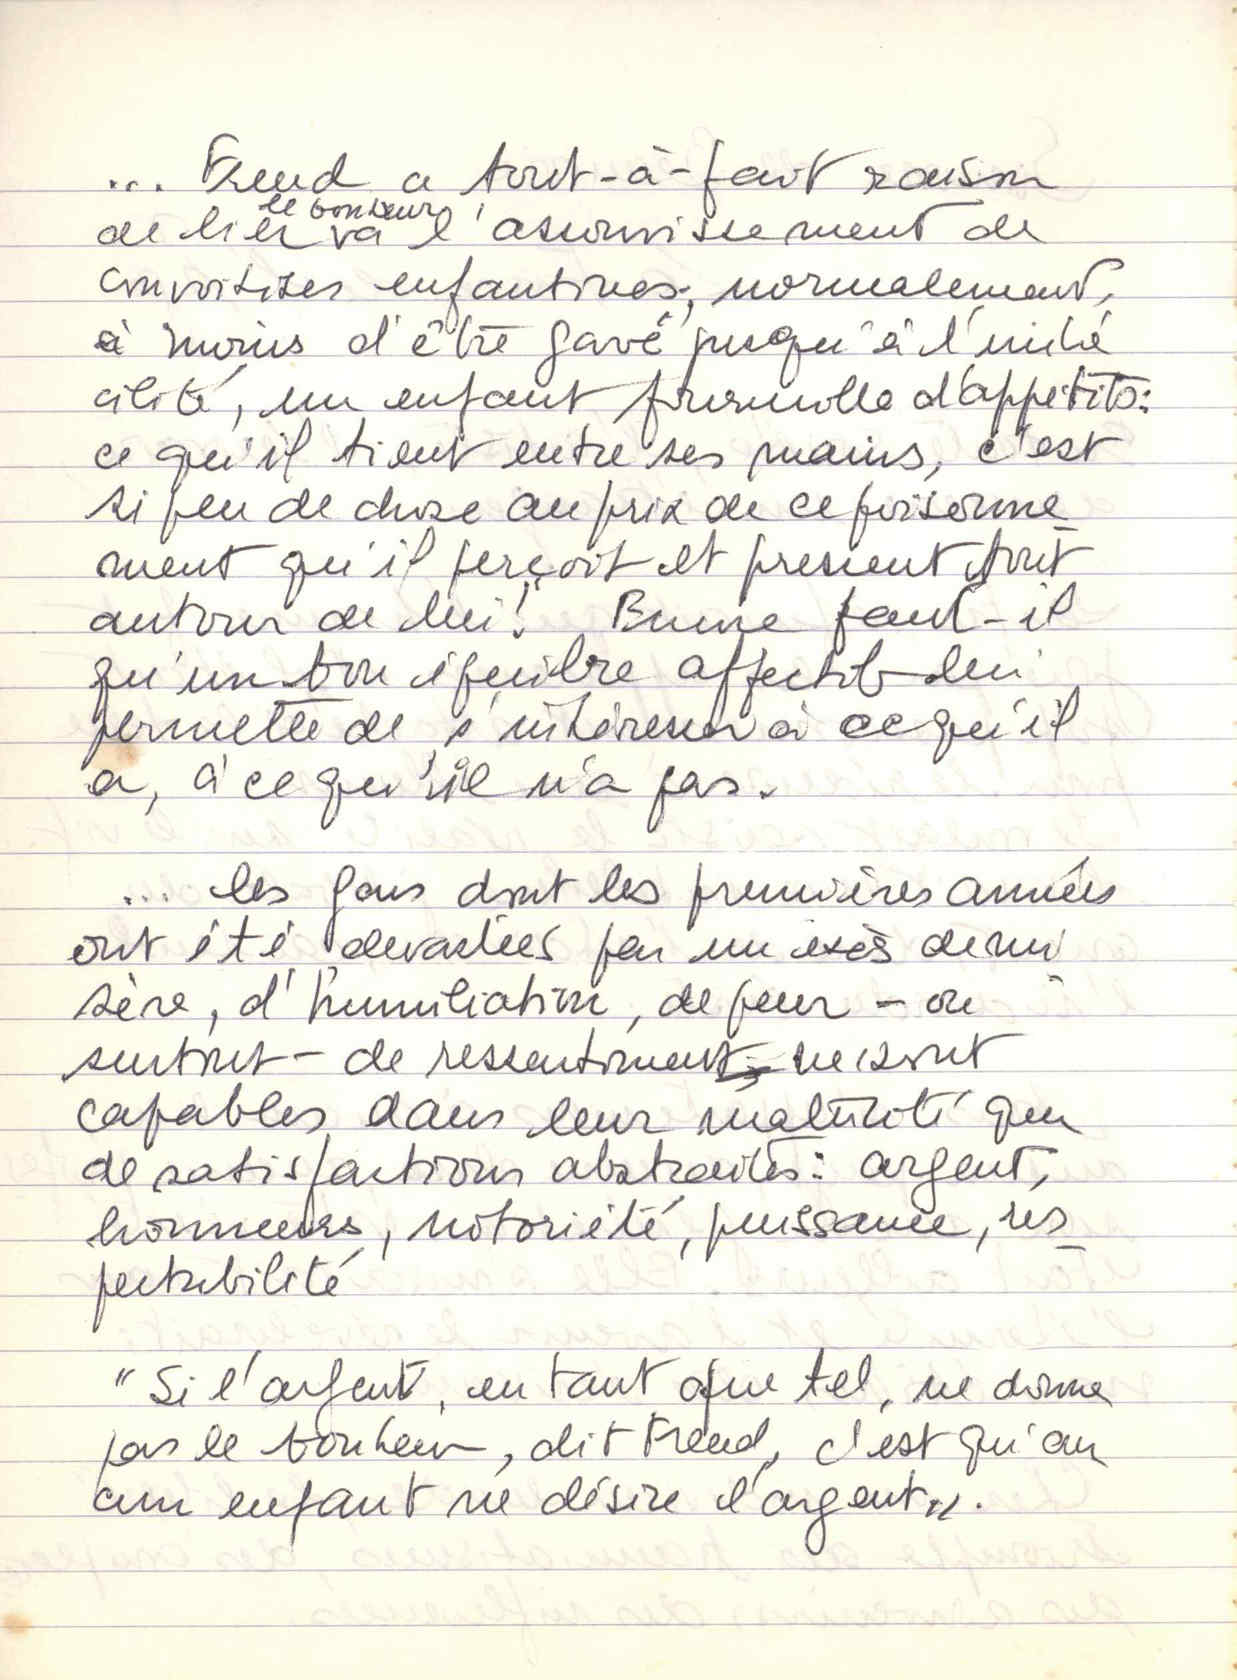 ... Freud a tout-à-fait raison
le bonheur
de lier à l'assouvissement de
convoitises enfantines; normalement,
à moins d'être gavé jusqu'à l'imbé
cilité, un enfant fourmille d'appétits:
ce qu'il tient entre ses mains, c'est
si peu de chose au prix de ce foisonne
ment qu'il perçoit et pressent tout
autour de lui! faut-il
qu'un bon équilibre affectif lui
permette de s'intéresser à ce qu'il
a, à ce qu'il n'a pas.
... les gens dont les premières années
ont été devastées par un exès de mi
sère, d'humiliation, de peur - ou
surtout - de ressentiment ne sont
capables dans leur maturité que
de satisfactions abstraites: argent,
honneurs, notoriété, puissance, res
pectabilité
"Si l'argent, en tant que tel, ne donne
pas le bonheur, dit Freud, c'est qu'au
cun enfant ne désire l'argent".